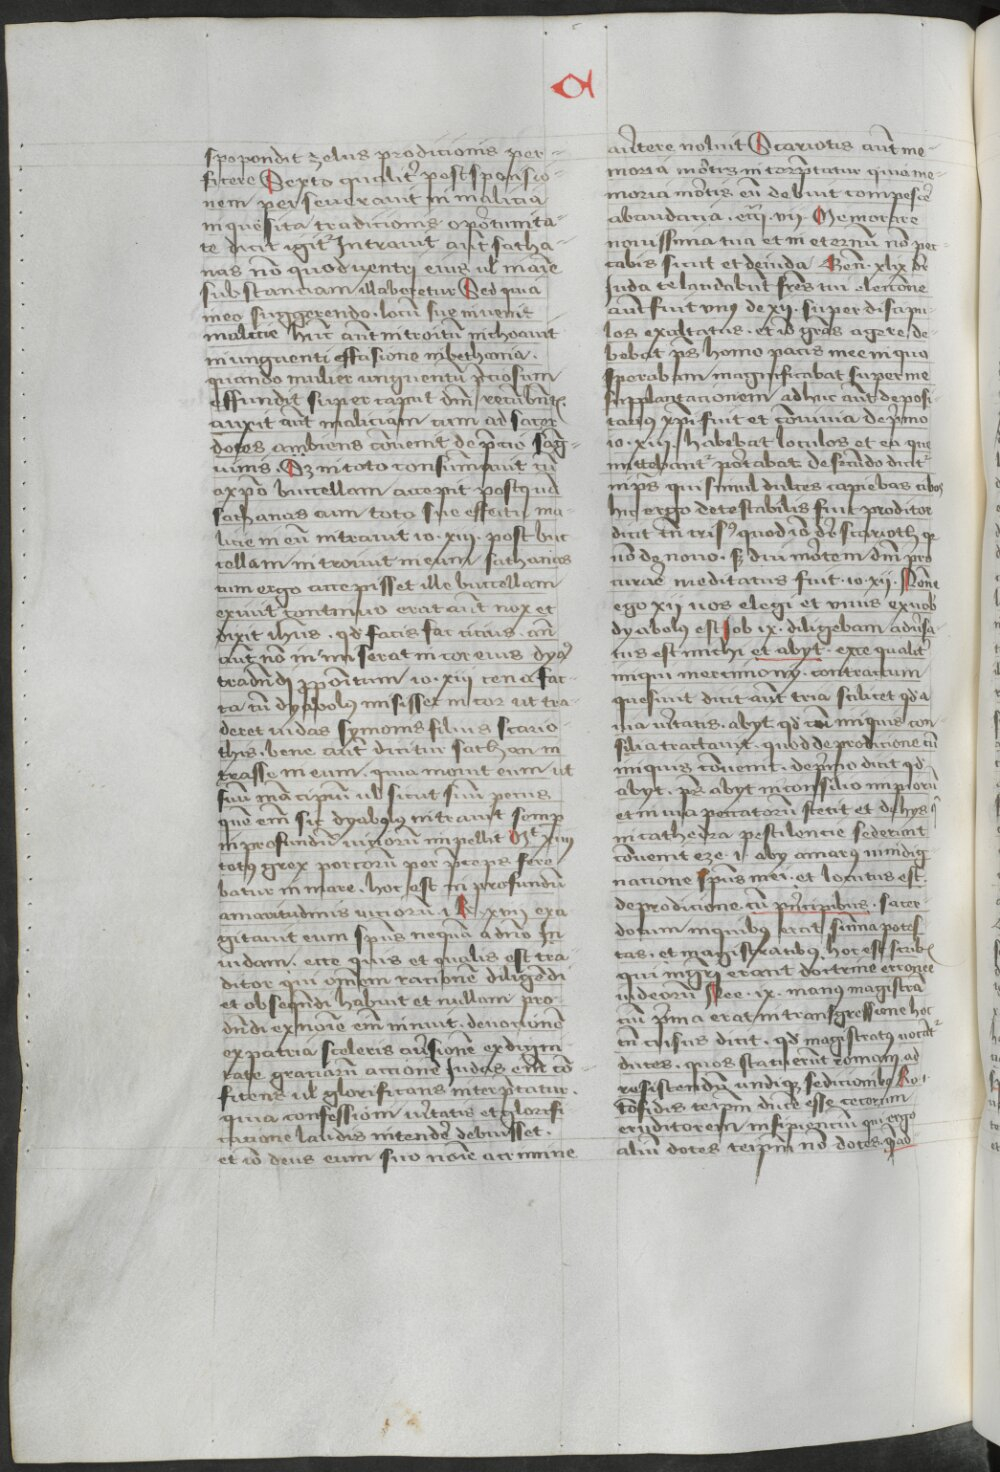 spopondit zelus prodicionis per-
ficere Sexto qualit͛ post sponsio-
nem perseuerauit in malicia
in quesita tradicionis oportunita-
te dicit igit͛ Intrauit aut̄ satha-
nas nō quod uentri eius ul̄ in aīe
substanciam illaberetur Sed quia
meo suggerendo locū sue inuenit
malicie hunc aut̄ introitū inchoauit
in unguenti effusione in bethania.
quando mulier unguentū p̄ciosum
effundit super caput dn̄i
auxit aut̄ maliciam cum ad sacer
dotes ambiens cōuenit de p̄cio sāg-
uinis. in toto consūmauit cū
a xp̄o buccellam accepit postquā
sathanas cum toto sue effectu ma-
licie in eū intrauit io. xiii. post buc
cellam introiuit in eum sathanas
cum ergo accepisset ille buccellam
exiuit continuo erat aut̄ nox et
dixit ih̄us. qd̄ facis fac cicius. an̄
aut̄ nō inmiserat in cor eius dya᷒
tradn̄di p̄poītum io. xiii cena fac-
ta cū dyabolus misisset in cor ut tra-
deret iudas symonis filius scario-
this. bene aut̄ dicitur sathan in
trasse in eum. quia mouit eum ut
suū mācipiū ul̄ sicut suū pecus
quē em̄ sic dyabolus intrauit semp̄
in profundū uiciorū impellit
totus grex porcorū per p̄ceps fere
batur in mare. hoc est in profundū
amaritudinis uiciorū. 1 R. xviii exa
gitauit eum sp̄us nequā a dn̄o In
iudam. ecce quis et qualis est tra
ditor qui om̄em racionē diligēdi
et obseqn̄di habuit et nullam pro-
dn̄di ex noīe em̄ innuit. deuocionē
ex patria sceleris au͛sionē ex digni
tate graciarū accionē Judas em̄ cō
fitens ul̄ glorificans interp̄tatur.
quia confessioni u͛itatis et glorifi
cacione laudis intende͛ debuisset.
et iō deus eum suo noīe a crimine
au͛tere noluit Scariotis aut̄ me-
moria mortis interp̄tatur quia me-
moria mortis eū debuit compesce͛
Memorare
nouissima tua et in eternū nō pec-
cabis sicut et deinda Gen̄. xlix
Juda te laudabūt fr̄es tui eleccione
aut̄ fuit unus de xii. super discipu
los exaltatus. et iō gr̄as agere de-
bebat ps̄ homo pacis mee in quo
sperabam magnificabat super me
supplantacionem ad huc aut̄ deposi
tarius xp̄i fuit et cōuiuia de p̄mo
io. xiii. habebat loculos et ea que
mittebant͛ portabat de secūdo dicit͛
in ps̄ qui simul dulces capiebas cibos
hic ergo detestabilis fuit proditor
dicit
nō de nouo. sꝫ diu mortem dn̄i pro
curare meditatus fuit. io. xii. Nōne
ego xii uos elegi et unus ex uob̄
dyabolus est Job ix. diligebam adu͛sa
tus est michi et abyt. ecce qualit͛
iniqui mercimony. contractum
quesiuit dicit aut̄ tria scilicet qd̄ a
uia u͛itatis. abyt qd̄ cū iniquis con
silia tractauit. quod de prodicione cū
iniquis cōuenit. de p̄mo dicit qd̄
abyt. ps̄ abyt in consilio impiorū
et in uia peccatorū stetit et de hys
in cathedra pestilencie sederunt
cōuenit eze. i. aby amarus in indig
nacione sp̄us mei. et locutus est.
de prodicione. cū p͛ncipibus. sacer
dotum in quibus
tas. et magistratibus. hoc est scribis
qui mgr̄i erant doctrine erronee
iudeorū. ix. manus magistra
tuū p̄ma erat in transgressione hec
crisus dicit. qd̄ magistratus uocāt͛
duces. quos statuerūt romani ad
resistendū undiqꝫ sedicionibꝫ Ro.
cōfidis teip̄m ducē esse cecorum
eruditorem insipienciū qui ergo
aliū doces teip̄m nō doces.